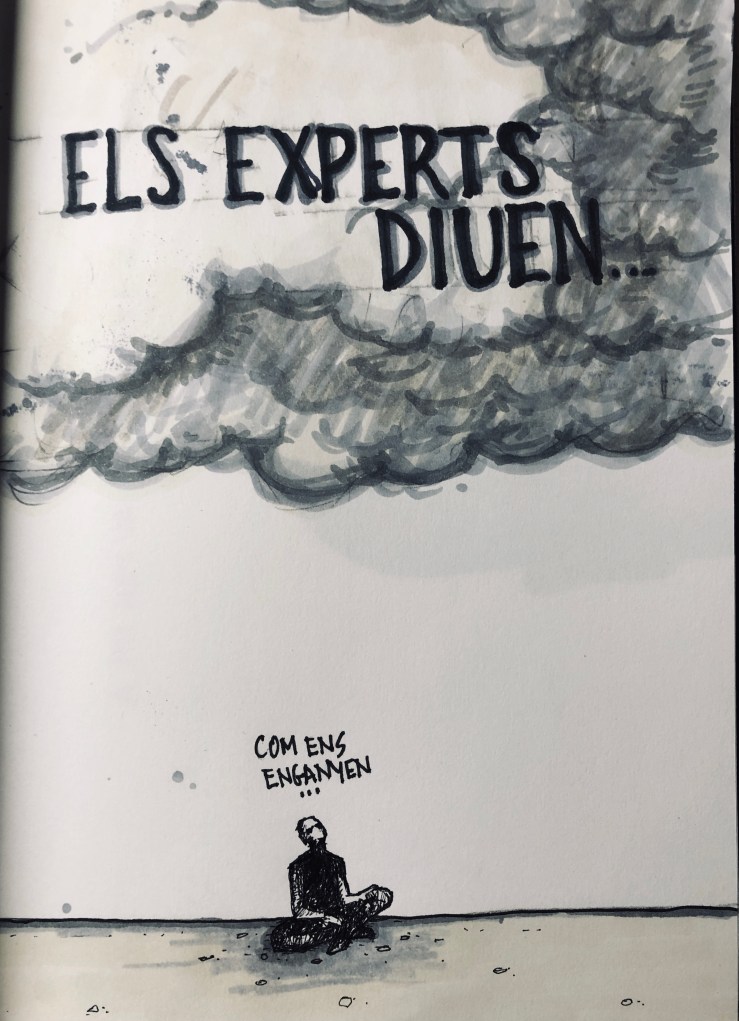 ELS EXPERTS
DIUEN...
COM ENS
ENGANYEN
...